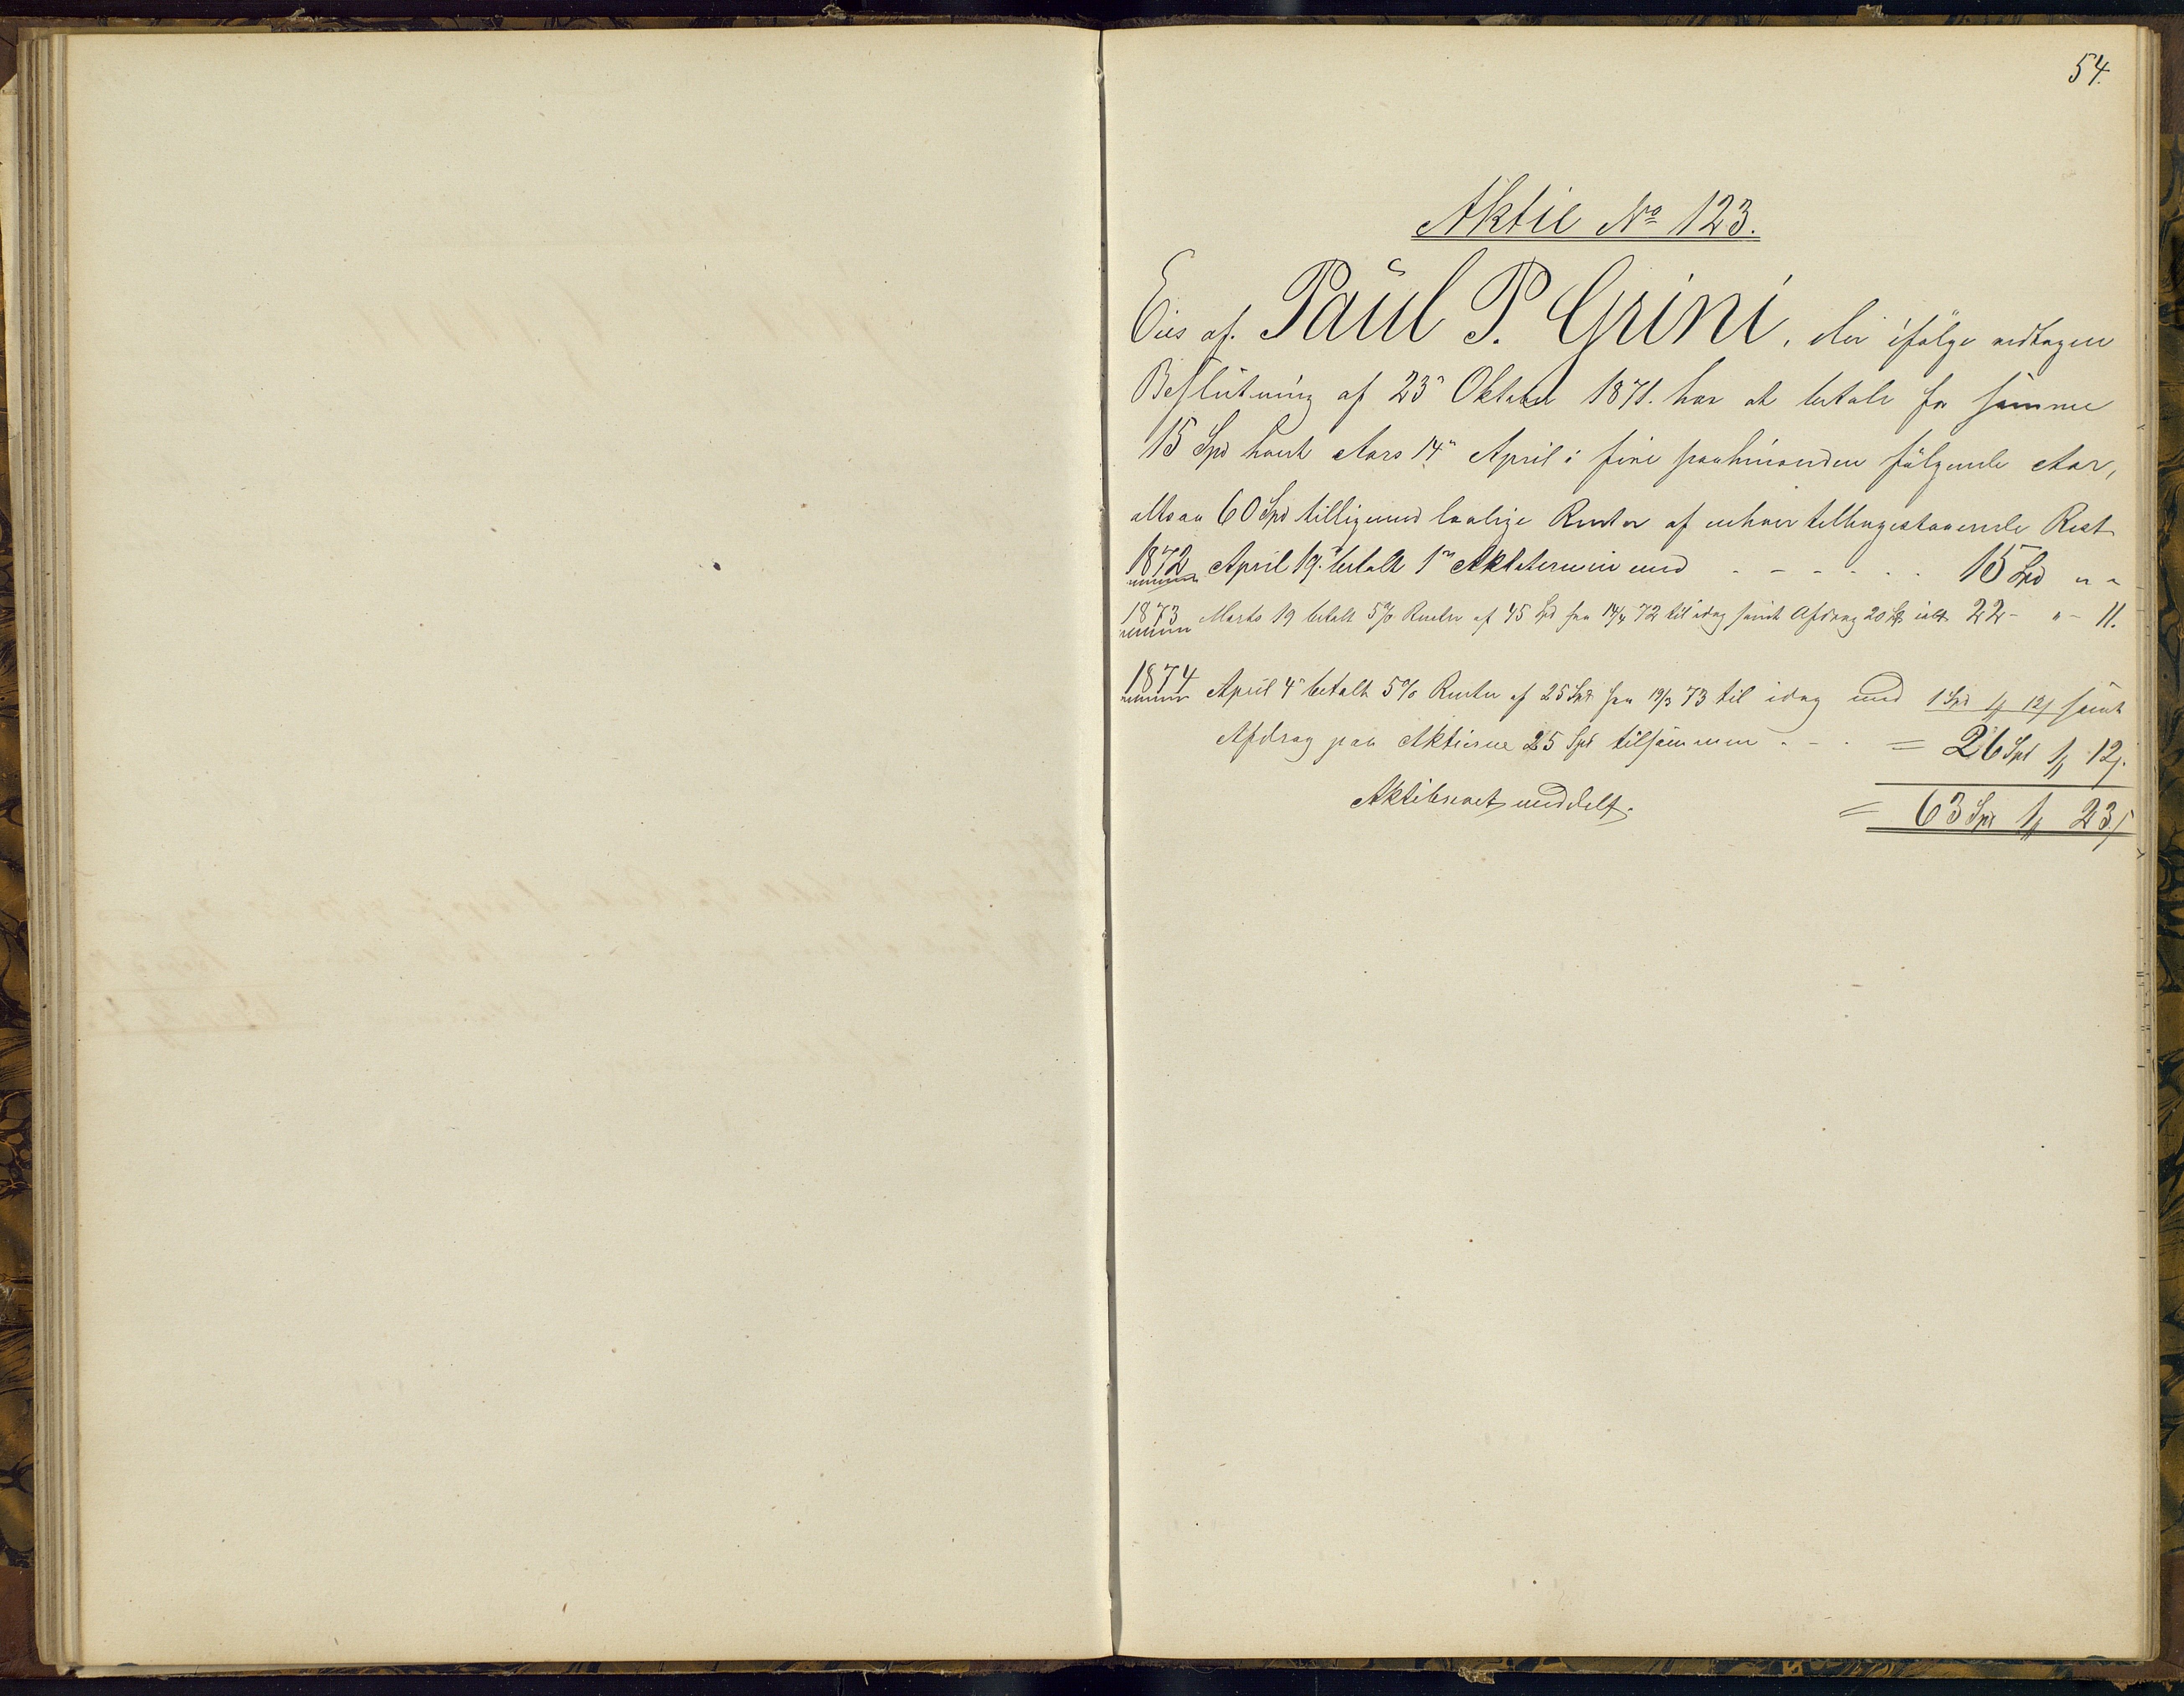 54.
Aktie No 123.
Eies af. Paul P. Grini, der ifølge vedtagen
Beslutning af 23de Oktober 1871. har at betale for samme
15 Spd hvert Aars 14de April i fire paahinanden følgende Aar,
altsaa 60 Spd tilligemed lovlige Renter af enhver tilbagestaaende Rest
1872 April 19. betalt 1ste Aktietermin med - - - - - - 15 Spd " "
1873 Marts 19 betalt 5% Renter af 45 Spd fra 14/4 72 til idag samt Afdrag 20 Spd ialt 22 - " - 11.
1874 April 4de betalt 5% Renter af 25 Spd fra 19/3 73 til idag med 1 Spd 1 12 samt
Afdrag paa Aktierne 25 Spd tilsammen - - - = 26 Spd 1 12.
Aktiebrevet meddelt. = 63 Spd 1 23